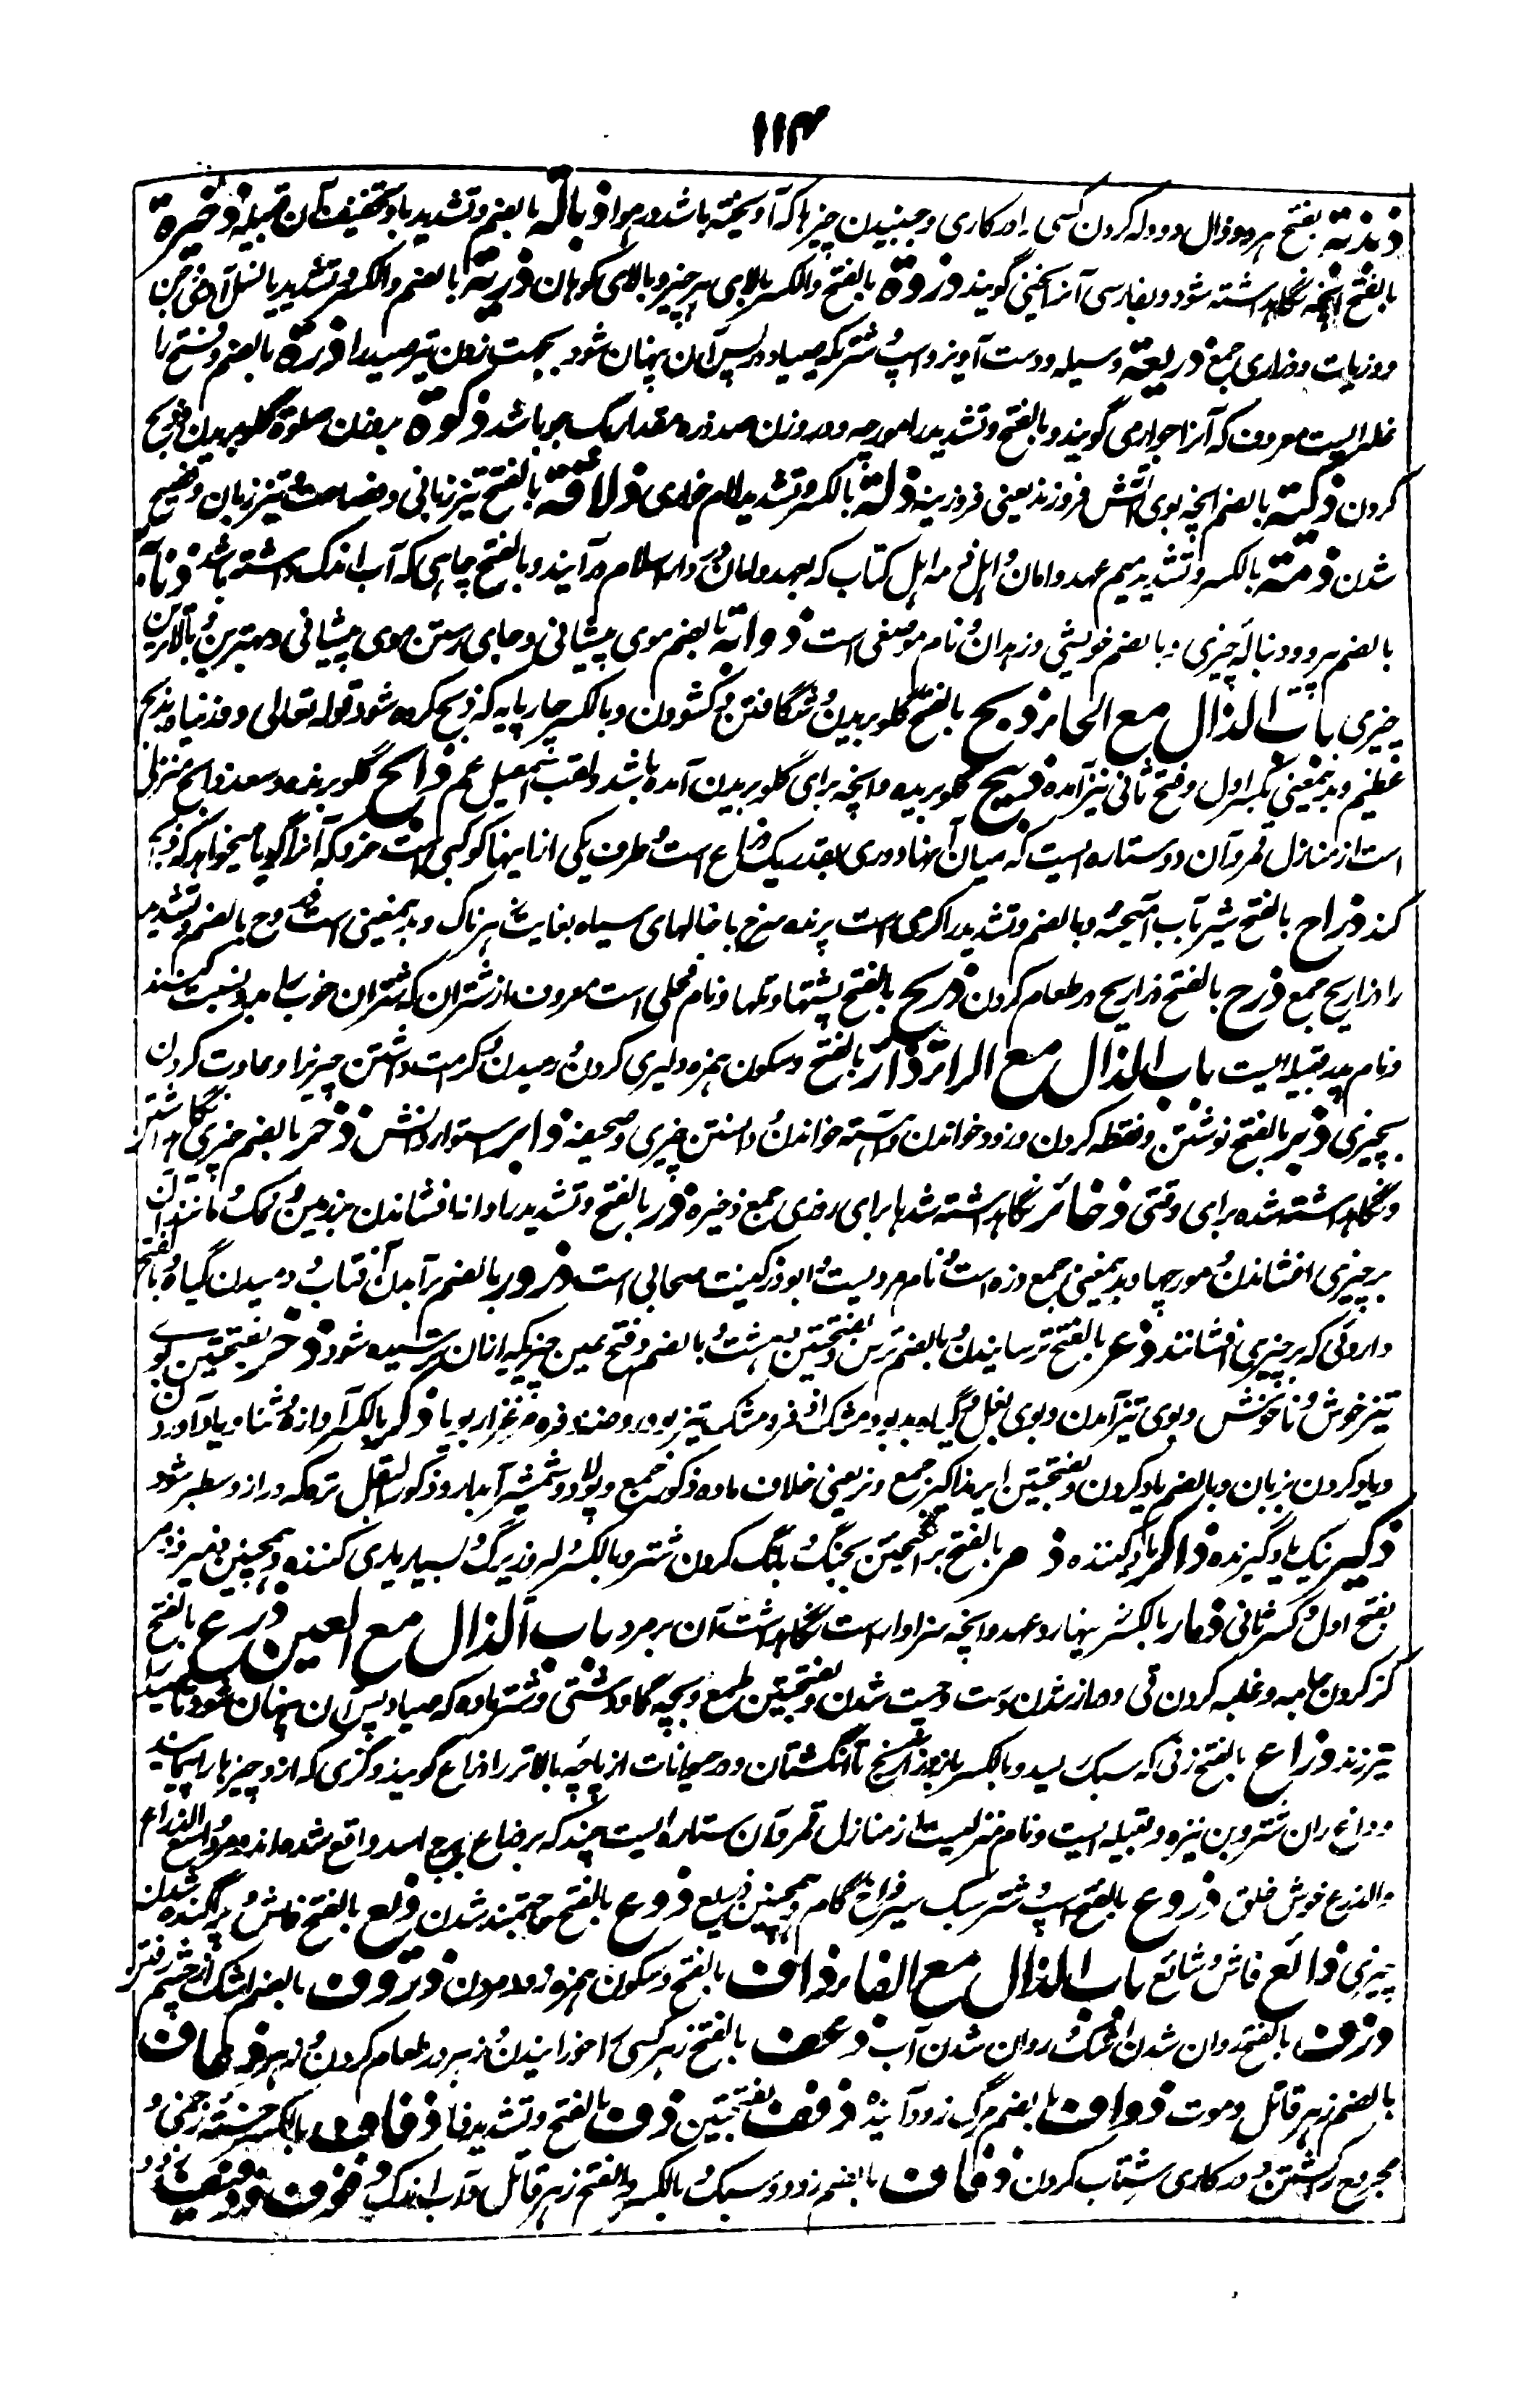 ۱۱۴
ذبذبة بفتح هر دو ذال دودله کردن کسی را در کاری و جنبیدن چیزها که آویخته باشد در هوا ذبالة بالضم و تشدید با و تخفیف آن فتیله ذخیرة
بالفتح آنچه نگاهداشته شود و بفارسی آنرا یخنی گویند ذروة بالفتح والکسر بالای هر چیز و بالای کوهان ذریة بالضم والکسر و تشدید یا نسل آدمی و جن
و ذریات و ذراری جمع ذریعة وسیله و دست آویز و اسپ و شتریکه صیاد در پس آن پنهان شود بجهت زدن تیر صید را ذرة بالضم و فتح را
غله ایست معروف که آنرا جواری گویند و بالفتح و تشدید را مورچه و در وزن صد ذره مقدار یک جو باشد ذکوة بر وزن صلوة گلو بریدن و ذبح
کردن ذکیة بالضم آنچه بوی آتش فروزند یعنی فروزینه ذلة بالکسر و تشدید لام خواری ذلاقة بالفتح تیز زبانی و فصاحت و تیز زبان و فصیح
شدن ذمة بالکسر و تشدید میم عهد و امان و اهل ذمه اهل کتاب که بعهد و امان در دار اسلام در آیند و بالفتح چاهی که آب اندک داشته باشد
بالضم پیرو و دنباله چیزی و بالضم خویشی و زهدان و نام موضعی است ذوابة بالضم موی پیشانی و جای رستن موی پیشانی و مهترین و بالاترین
چیزی باب الذال مع الحا ذبح بالفتح گلو بریدن و شگافتن و کشودن و بالکسر چارپایه که ذبح کرده شود قوله تعالی و فدیناه بذبح
عظیم و بدینمعنی بکسر اول و فتح ثانی نیز آمده ذبیح گلو بریده و آنچه برای گلو بریدن آمده باشد و لقب اسمعیل عم ذابح گلو برنده و سعد ذابح منزلی
است از منازل قمر و آن دو ستاره ایست که میان آنها دوری بقدر یک ذراع است و طرف یکی از اینها کوکبی است خرد که آنرا گویا میخواهد که ذبح
کند ذراح بالفتح شیر بآب آمیخته و بالضم و تشدید را کرمی است پرنده سرخ با خالهای سیاه بغایت زهرناک و بدینمعنی است ذروح بالضم و تشدید
را ذراریح جمع ذرح بالفتح ذراریح در طعام کردن ذریح بالفتح پشتها و تلها و نام فحلی است معروف از شتران که شتران خوب را بدو نسبت کنند
و نام پدر قبیله ایست باب الذال مع الرا ذأر بالفتح و سکون همزه دلیری کردن و رمیدن و مکرمت داشتن چیزیرا و عادت کردن
بچیزی ذبر بالفتح نوشتن و نقطه کردن و زود خواندن و آهسته خواندن و دانستن چیزی و صحیفه ذابر استوار دانش ذخر بالضم چیزی نگاه داشتن
و نگاهداشته شده برای وقتی ذخائر نگاهداشته شدها برای روزی جمع ذخیره ذر بالفتح و تشدید را دانا فشاندن بر زمین و نمک و مانند آن
بر چیزی افشاندن و مورچها و بدینمعنی جمع ذره است و نام مردیست و ابوذر کنیت صحابی است ذرور بالضم برآمدن آفتاب و دمیدن گیاه و بالفتح
داروئی که بر چیزی افشانند ذعر بالفتح ترسانیدن و بالضم ترس و بفتحتین دهشت و بالضم و فتح عین چیزیکه از آن ترسیده شود ذخر بفتحتین بوی
تیز خوش و ناخوش و بوی تیز آمدن و بوی بغل و گیاه بدبو و مشک اذفر و مشک تیز بو و روضه ذفره مرغزار بویا ذکر بالکسر آوازه و ثنا و یاد آوردن
و یاد کردن بزبان و بالضم یاد کردن و بفتحتین ایر مذاکیر جمع و نر یعنی خلاف ماده ذکور جمع و پولاد و شمشیر آبدار و ذکور البقل تره که دراز و سطبر شود
ذکیر نیک یادگیرنده ذاکر یاد کننده ذمر بالفتح برانگیختن بجنگ و بانگ کردن شتر و بالکسر دلیر و زیرک و بسیار یاری کننده و همچنین ذمیر و ذمر
بفتح اول و کسر ثانی ذمار بالکسر زینهار و عهد و آنچه سزاوار است نگاهداشت آن بر مرد باب الذال مع العین ذرع بالفتح
گز کردن جامه و غلبه کردن قی و دراز شدن دست و چست شدن و بفتحتین طمع و بچه گاو دشتی و شتر ماده که صیاد پس آن پنهان شود تا صید را
تیر زند ذراع بالفتح زنی که سبک ریسد و بالکسر بازو از آرنج تا انگشتان و در حیوانات از پاچه بالاتر را ذراع گویند و گزی که ازو چیزها را پیمایند
و داغ ران شتر و بن نیزه و قبیله ایست و نام منزلیست از منازل قمر و آن ستاره ایست چند که بر ذراع برج اسد واقع شده اند و مرد واسع الذراع
و الذرع خوش خلق ذروع بالفتح اسپ و شتر سبک سیر فراخ گام و همچنین ذریع ذروع بالفتح حاجتمند شدن ذلع بالفتح فاش و پراگنده شدن
چیزی ذائع فاش و شائع باب الذال مع الفا ذأف بالفتح و سکون همزه زود مردن ذروف بالضم اشک از چشم رفتن
ذرف بالفتح روان شدن اشک و روان شدن آب ذعف بالفتح زهر کسی را خورانیدن و زهر در طعام کردن و زهر ذعاف
بالضم زهر قاتل و موت ذواف بالضم مرگ زود آینده ذفف بفتحتین ذف بالفتح و تشدید فا ذفاف بالکسر خسته زخمی و
مجروح را کشتن و در کاری شتاب کردن ذفاف بالضم زود و سبک و بالکسر والفتح زهر قاتل و آب اندک